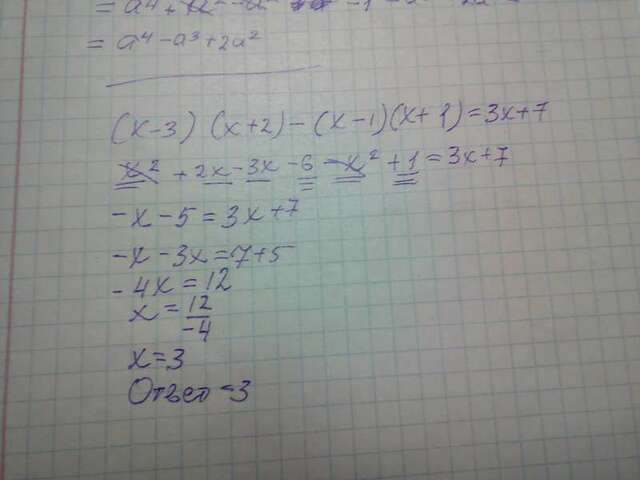 = a⁴ - a³ + 2a²
(x-3) (x+2) - (x-1)(x+1) = 3x+7
x² + 2x - 3x - 6 - x² + 1 = 3x+7
-x - 5 = 3x + 7
-x - 3x = 7+5
-4x = 12
x = 12/-4
x = 3
Ответ -3